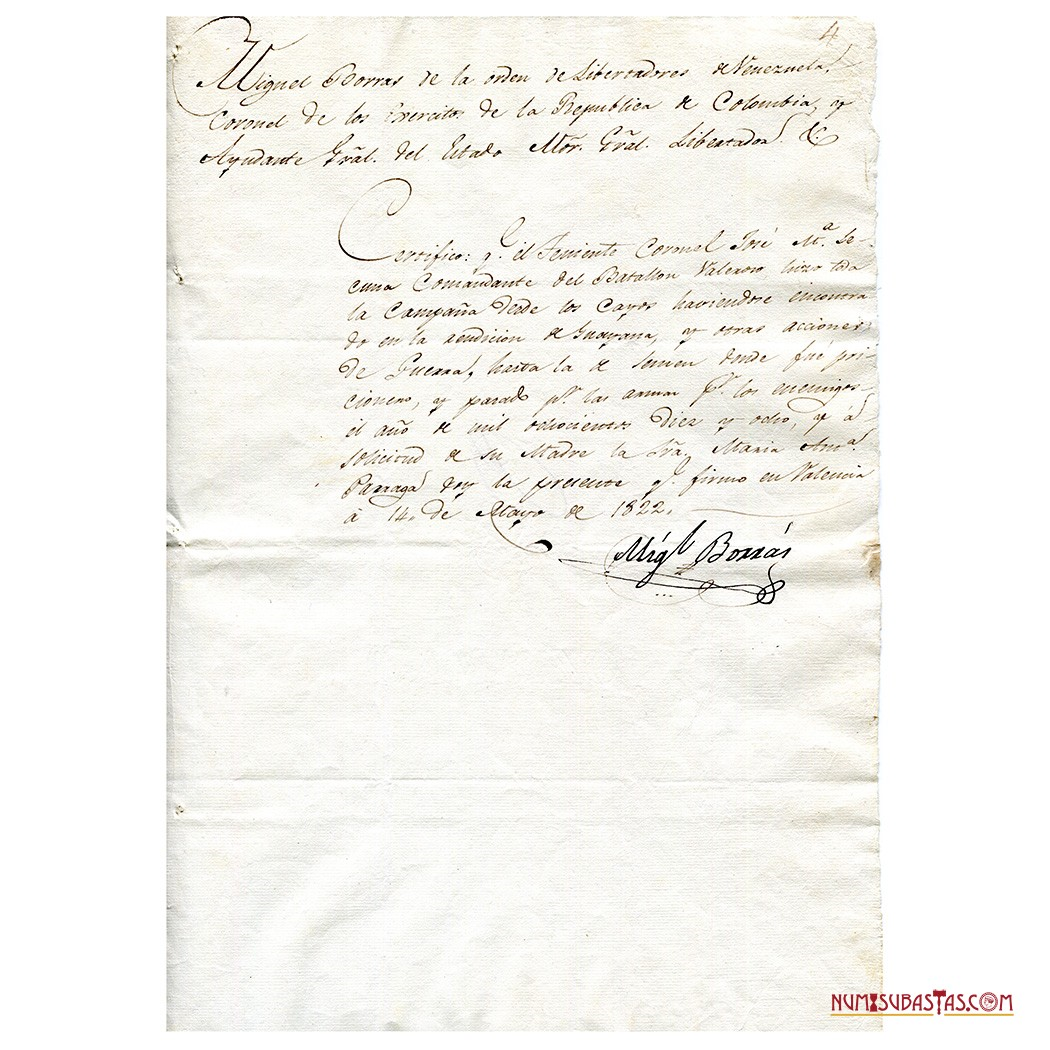 4
Miguel Borras de la orden de Libertadores de Venezuela,
Coronel de los Exercitos de la Republica de Colombia, y
Ayudante Gräl. del Estado Mor. Gräl. Libertador. &.
Certifico: q.e el Teniente Coronel José M.a Se-
cuna Comandante del Batallon Valeroso hizo toda
la Campaña desde los Cayos haviendose encontra
do en la rendicion de Guayana, y otras acciones
de Guerra, hasta la de Semen donde fué pri-
cionero, y pasado p.r las armas p.r los enemigos
el año de mil ochocientos diez y ocho, y á
solicitud de su Madre la Sra. Maria Ant.a
Parraga doy la presente q.e firmo en Valencia
á 14. de Mayo de 1822.
Mig.l Borrás
NUMISUBASTAS.COM